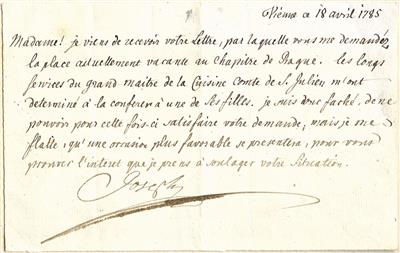 Vienne ce 18 avril 1785
Madame! je viens de recevoir votre Lettre, par laquelle vous me demandez
la place actuellement vacante au Chapitre de Prague. les longs
services du grand maitre de la Cuisine Comte de S. Julien m'ont
determiné à la conferer à une de ses filles. je suis donc faché, de ne
pouvoir pour cette fois-ci satisfaire votre demande, mais je me
flatte, qu'une occasion plus favorable se presentera, pour vous
prouver l'interet que je prens à soulager votre Situation.
Joseph